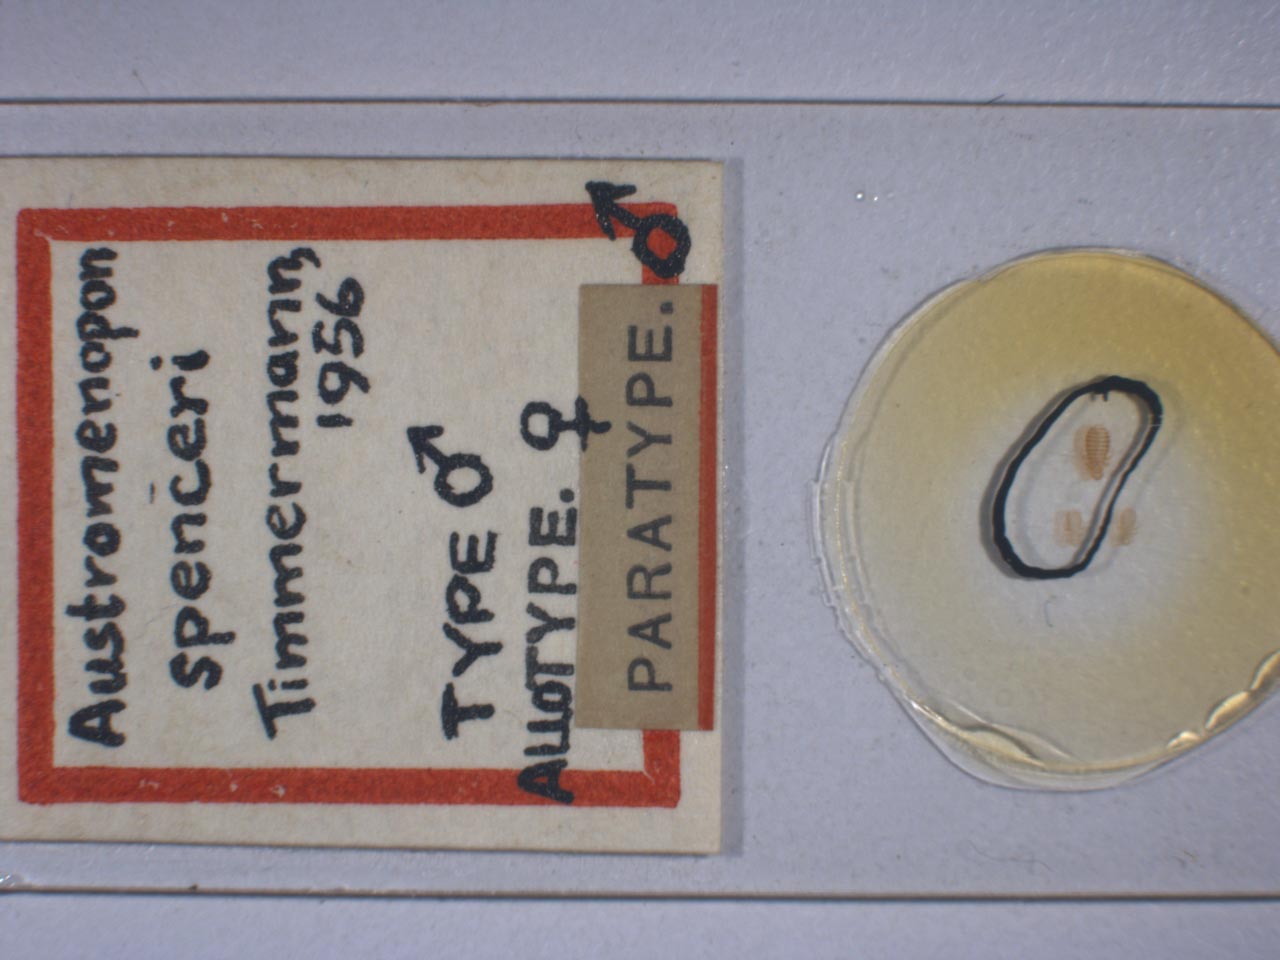 Austromenopon
spenceri
Timmermann,
1956
TYPE ♂
ALLOTYPE. ♀
PARATYPE. ♂